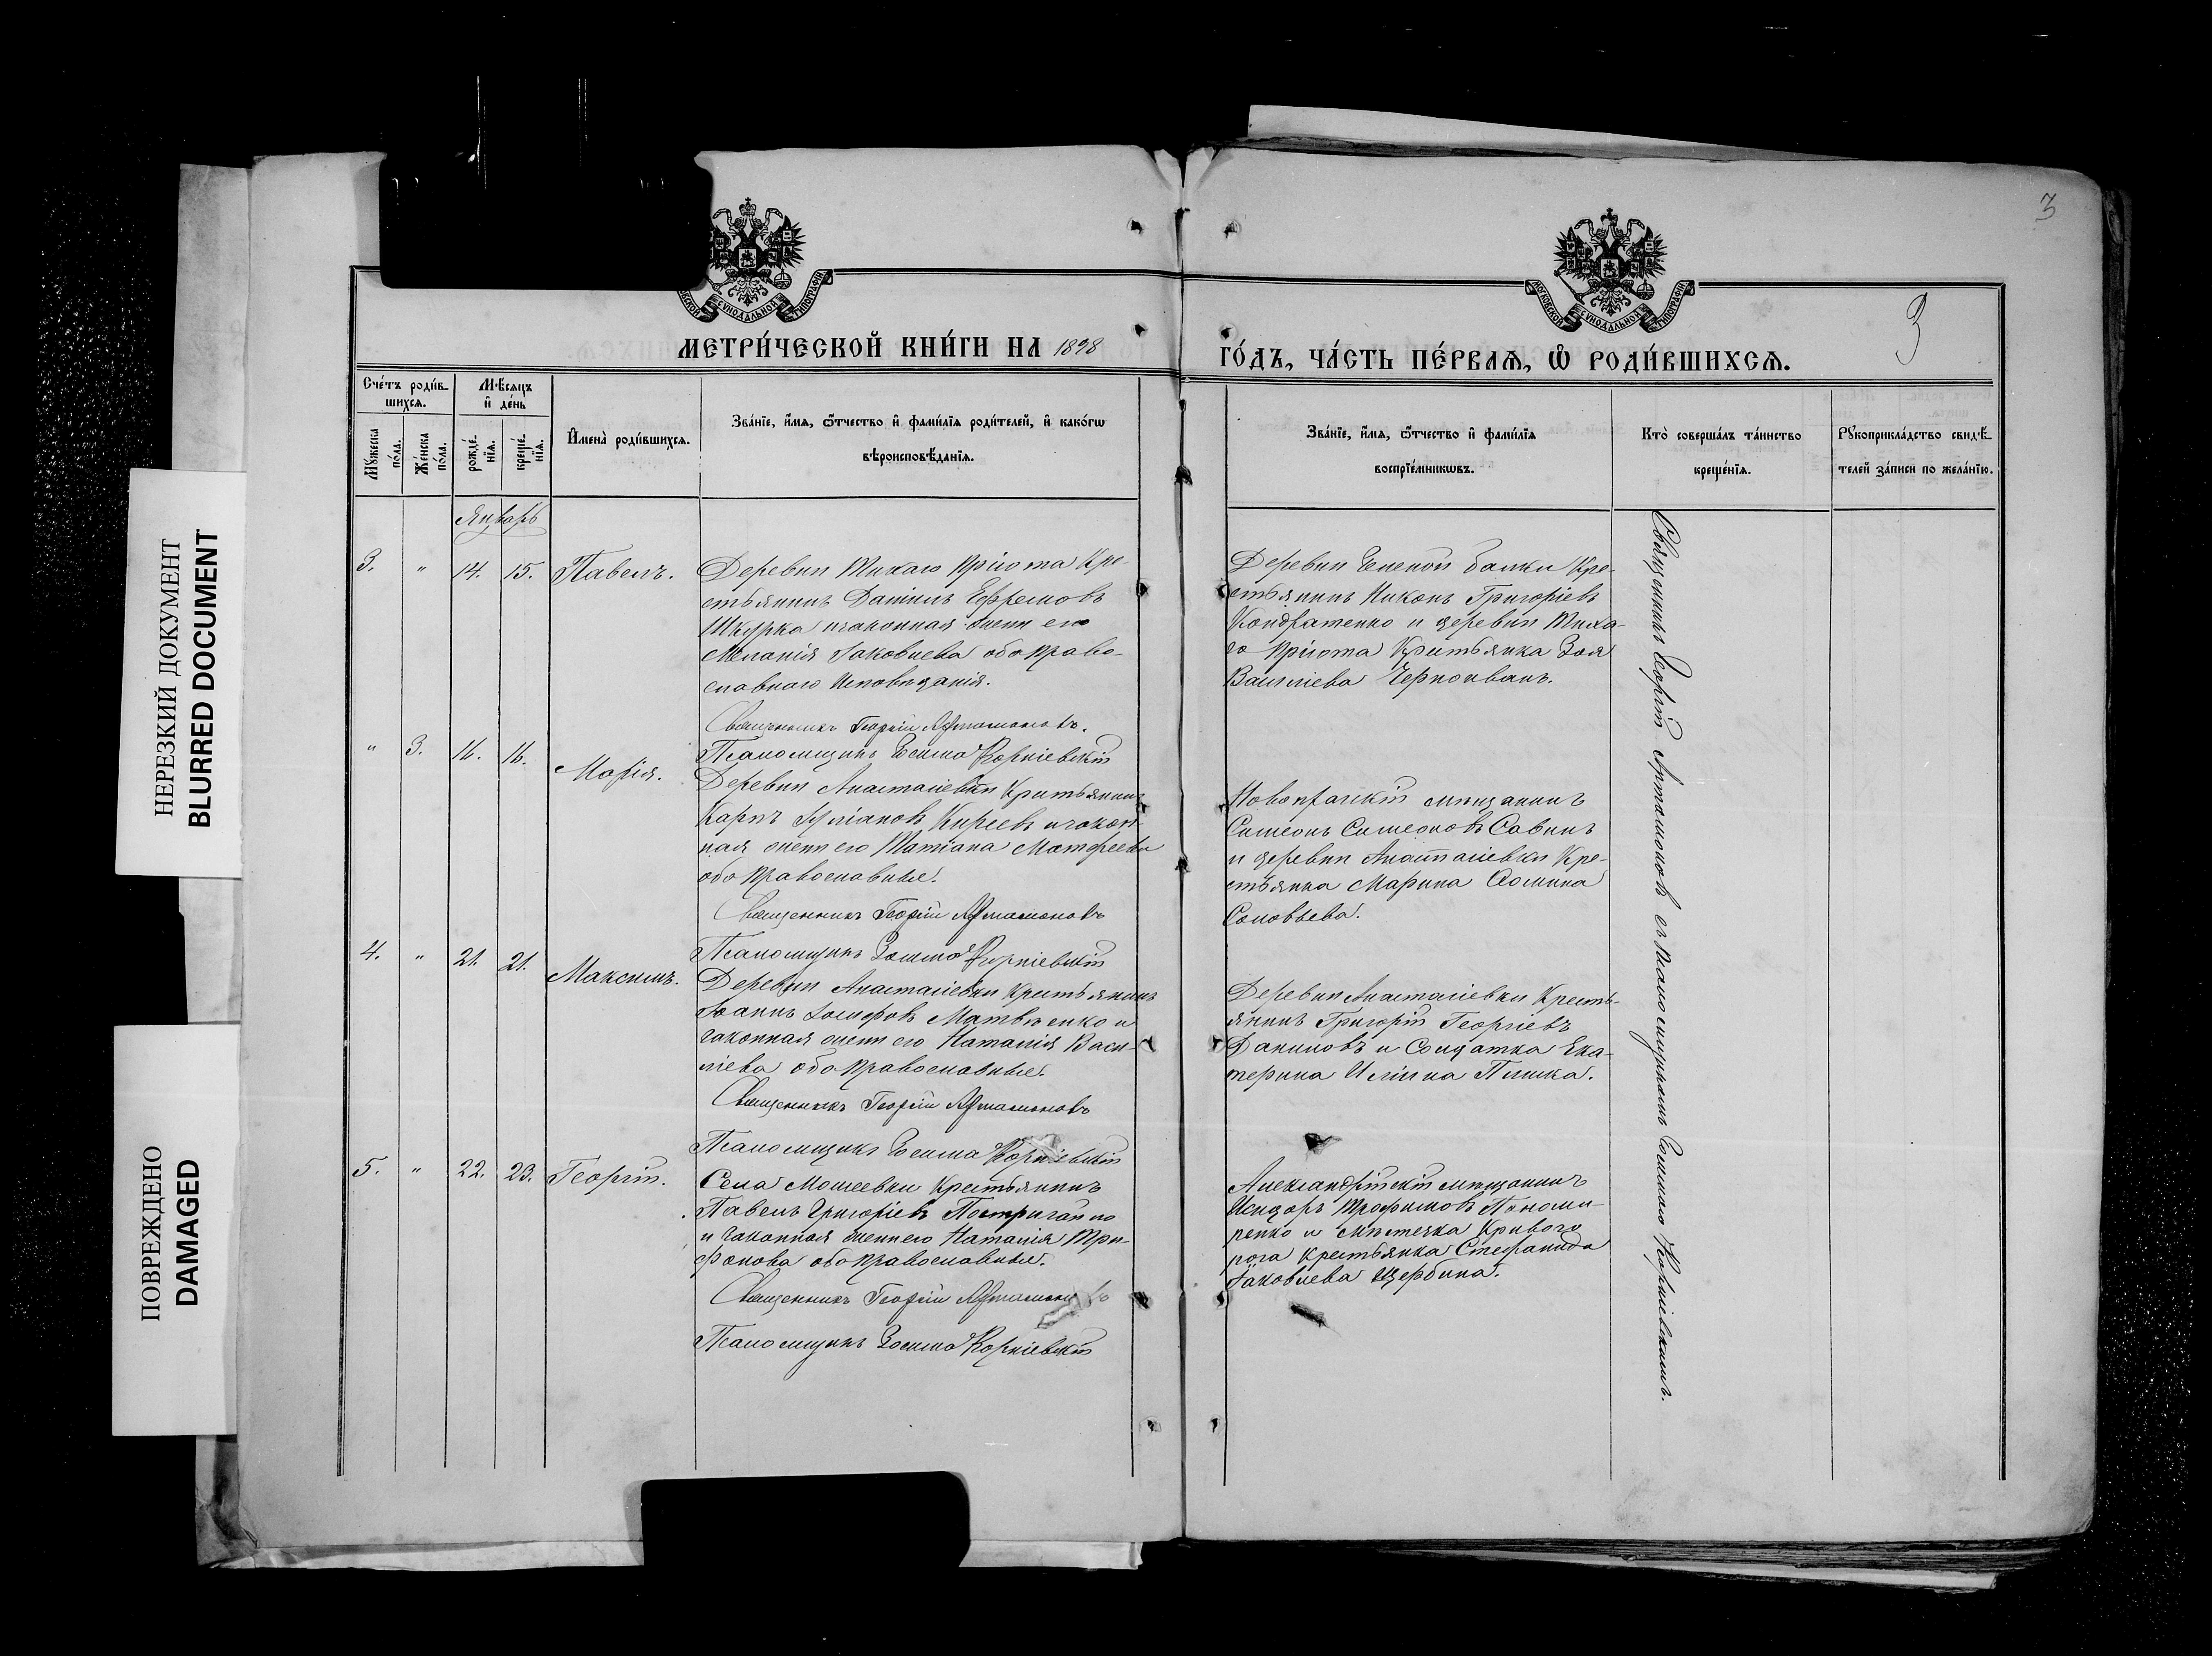 НЕРЕЗКИЙ ДОКУМЕНТ
BLURRED DOCUMENT
ПОВРЕЖДЕНО
DAMAGED
3
3
СУНОДАЛЬНОЙ ТИПОГРАФІИ
МОСКОВСКОЙ СУНОДАЛЬНОЙ ТИПОГРАФІИ
МЕТРИ́ЧЕСКОЙ КНИ́ГИ НА 1898
ГО́ДЪ, ЧА́СТЬ ПЕ́РВАѦ, Ѡ РОДИ́ВШИХСѦ.
Сче́тъ роди́в-
шихсѧ.
Му́жеска по́ла.
Же́нска по́ла.
Мѣ́сѧцъ и҆ де́нь
рожде́нїѧ.
креще́нїѧ.
И҆мена̀ роди́вшихсѧ.
Зва́нїе, и҆́мѧ, ѻ҆́тчество и҆ фами́лїѧ роди́телей, и҆ како́гѡ
вѣроисповѣ́данїѧ.
Зва́нїе, и҆́мѧ, ѻ҆́тчество и҆ фами́лїѧ
воспрїе́мникѡвъ.
Кто̀ соверша́лъ та́инство
креще́нїѧ.
Рꙋкоприкла́дство свидѣ́-
телей за́писи по жела́нїю.
Январь
3. " 14. 15. Павелъ.
Деревни Тихаго Пріюта Кре-
стьянинъ Даніилъ Ефремовъ
Шкурка и законная жена его
Меланія Іаковлева оба право-
славнаго исповѣданія.
Священникъ Георгій Артамоновъ.
Псаломщикъ Зосима Корніевскій
Деревни Балки Кре-
стьянинъ Никонъ Григоріевъ
Кондратенко и деревни Тиха-
го Пріюта Крестьянка Зоя
Василіева Черноиванъ.
" 3. 16. 16. Марія.
Деревни Анастасіевки Крестьянинъ
Карпъ Іуліановъ Киреевъ и закон-
ная жена его Татіана Матфеева
оба православные.
Священникъ Георгій Артамоновъ
Псаломщикъ Зосима Корніевскій
Новопражскій мѣщанинъ
Симеонъ Симеоновъ Савинъ
и деревни Анастасіевки Кре-
стьянка Марина
Соловьева.
4. " 21. 21. Максимъ.
Деревни Анастасіевки Крестьянинъ
Іоаннъ Матвѣенко и
законная жена его Наталія Васи-
ліева оба православные.
Священникъ Георгій Артамоновъ
Псаломщикъ Зосима Корніевскій
Деревни Анастасіевки Кресть-
янинъ Григорій Георгіевъ
Даниловъ и Солдатка Ека-
терина Иліина
5. " 22. 23. Георгій.
Села Моисеевки Крестьянинъ
Павелъ Григоріевъ
и законная жена его Наталія Три-
фонова оба православные.
Священникъ Георгій Артамоновъ
Псаломщикъ Зосима Корніевскій
Александрійскій мѣщанинъ
Исидоръ Трофимовъ Понома-
ренко и мѣстечка Кривого
рога крестьянка Стефанида
Іаковлева Щербина.
Священникъ Георгій Артамоновъ съ псаломщикомъ Зосимою Корніевскимъ.